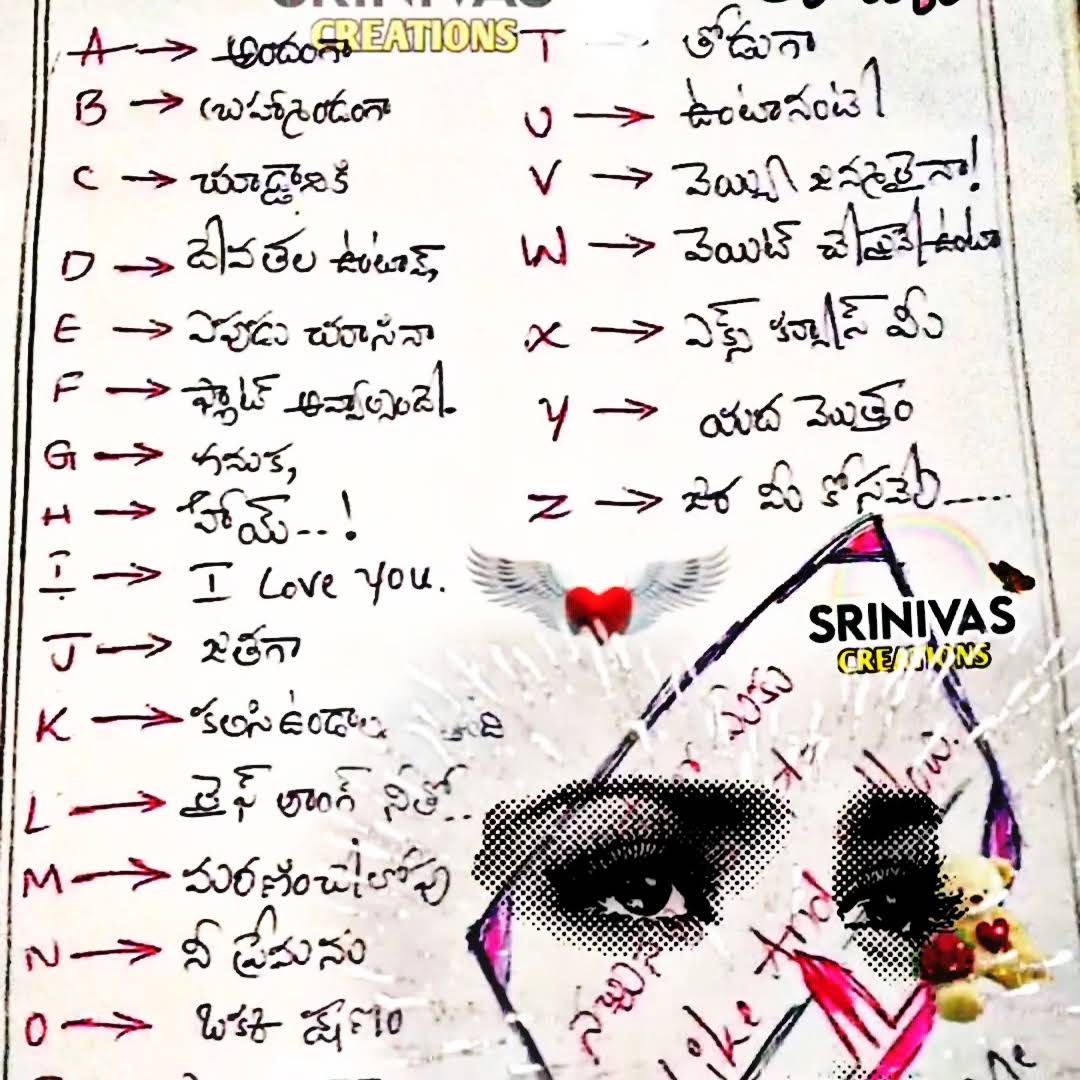 SRINIVAS
CREATIONS
A → అందంగా
B → బ్రహ్మాండంగా
C → చూడ్డానికి
D → దేవతల ఉంటావ్,
E → ఎపుడు చూసినా
F → ఫ్లాట్ అవ్వాల్సిందే.
G → గనుక,
H → హాయ్...!
I → I Love you.
J → జతగా
K → కలిసి ఉండాల
L → లైఫ్ లాంగ్ నీతో..
M → మరణించేలోపు
N → నీ ప్రేమను
O → ఒకక్షణం
T → తోడుగా
U → ఉంటానంటే
V → వెయ్యి జన్మలైనా!
W → వెయిట్ చేస్తునే ఉంటా
X → ఎక్స్ క్యూజ్ మీ
Y → యద మొత్తం
Z → జర మీ కోసమే.....
SRINIVAS
CREATIONS
మీకు
నచ్చు
Like And